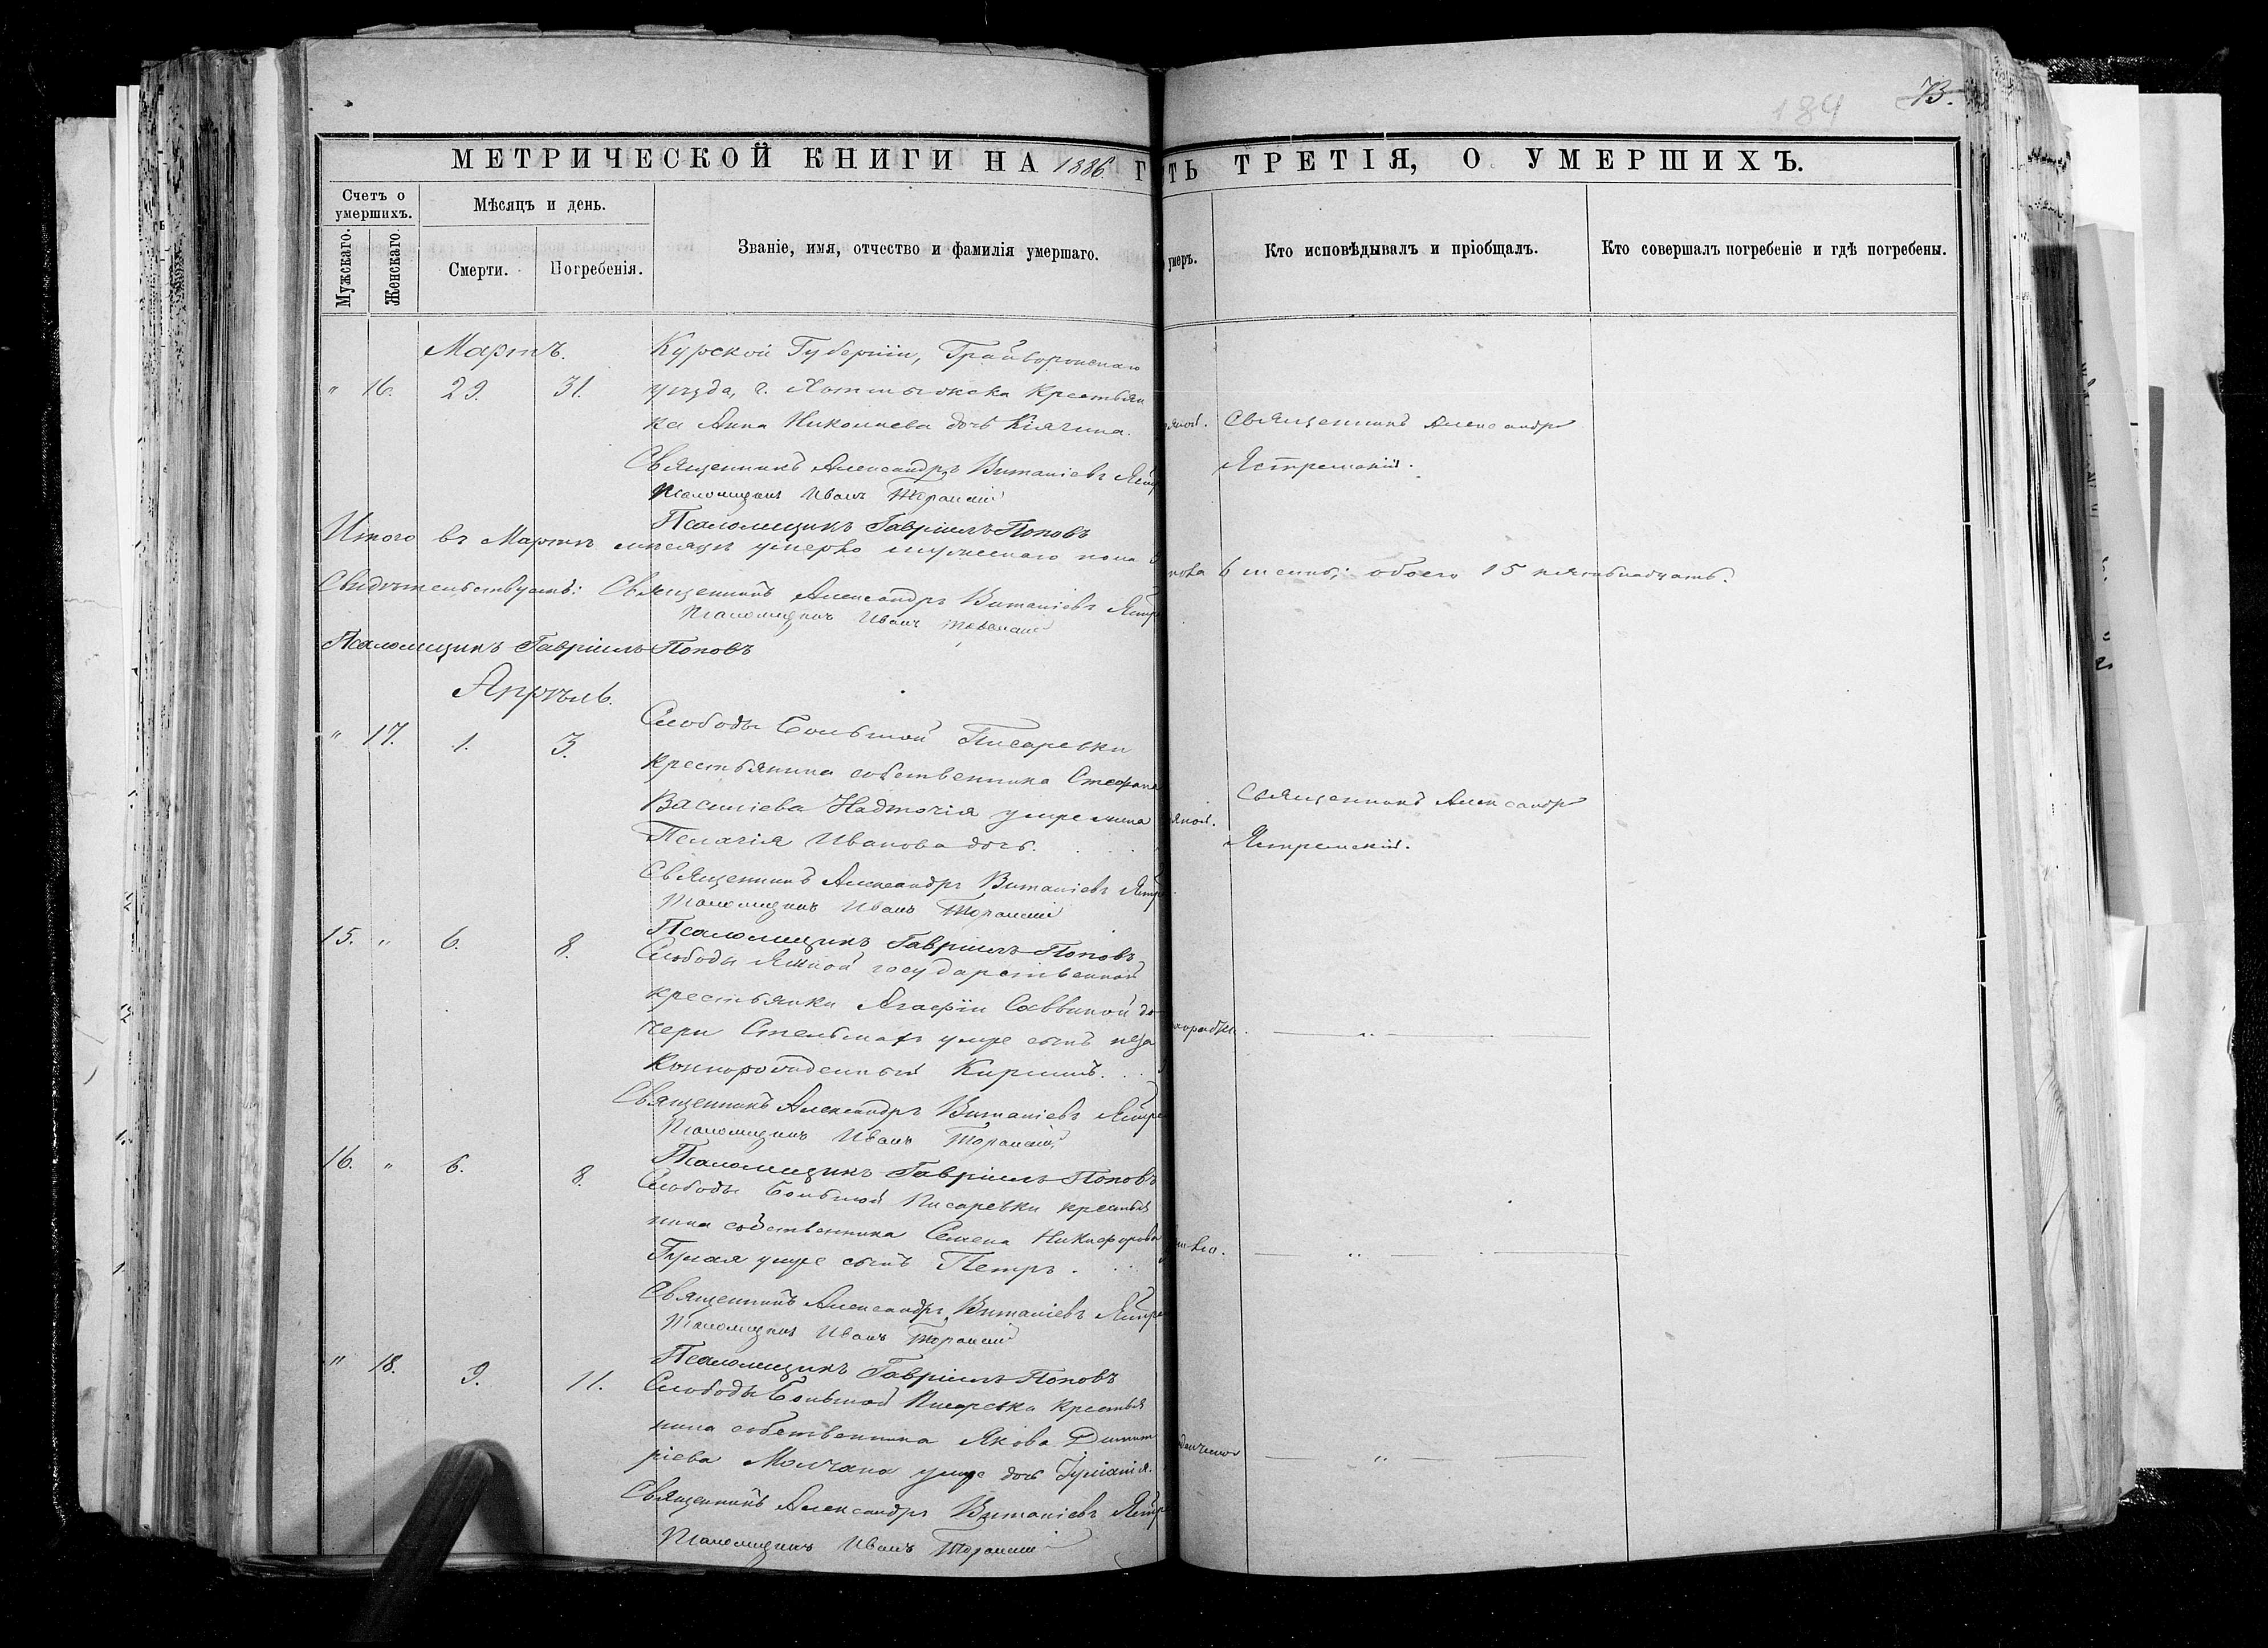 184 73.
МЕТРИЧЕСКОЙ КНИГИ НА 1886 Г
ТЬ ТРЕТІЯ, О УМЕРШИХЪ.
Счетъ о умершихъ.
Мужскаго.
Женскаго.
Мѣсяцъ и день.
Смерти.
Погребенія.
Званіе, имя, отчество и фамилія умершаго.
умеръ.
Кто исповѣдывалъ и пріобщалъ.
Кто совершалъ погребеніе и гдѣ погребены.
Мартъ.
Курской Губерніи, Грайворонскаго
" 16. 29. 31. уѣзда, г. Хотмыжска крестьян
ка Анна Николаева дочь
Священникъ Александръ
Ястремскій.
Священникъ Александръ Витаніевъ Ястре
Псаломщикъ Иванъ
Псаломщикъ Гавріилъ Поповъ
Итого въ Мартѣ мѣсяцѣ умерло мужескаго пола
пола 6 шесть; обоего 15 пятьнадцать.
Свидѣтельствуетъ: Священникъ Александръ Витаніевъ Ястре
Псаломщикъ Иванъ
Псаломщикъ Гавріилъ Поповъ
Апрѣль.
" 17. 1. 3. Слободы Большой Писаревки
крестьянина собственника Стефана
Василіева Надточія умре жена
Пелагія Иванова дочь.
Священникъ Александръ
Ястремскій.
Священникъ Александръ Витаніевъ Ястр
Псаломщикъ Иванъ
Псаломщикъ Гавріилъ Поповъ
15. " 6. 8. Слободы Ямной государственной
крестьянки Агафіи Саввиной до
чери Стельмахъ умре сынъ неза
коннорожденный Кириллъ.
Священникъ Александръ Витаніевъ Ястре
Псаломщикъ Иванъ
Псаломщикъ Гавріилъ Поповъ
16. " 6. 8. Слободы Большой Писаревки крестья
нина собственника Семена Никифорова
умре сынъ Петръ.
Священникъ Александръ Витаніевъ Ястре
Псаломщикъ Иванъ
Псаломщикъ Гавріилъ Поповъ
" 18. 9. 11. Слободы Большой Писаревки крестья
нина собственника Якова Димит
ріева Молчана умре дочь Іуліанія.
Священникъ Александръ Витаніевъ Ястр
Псаломщикъ Иванъ